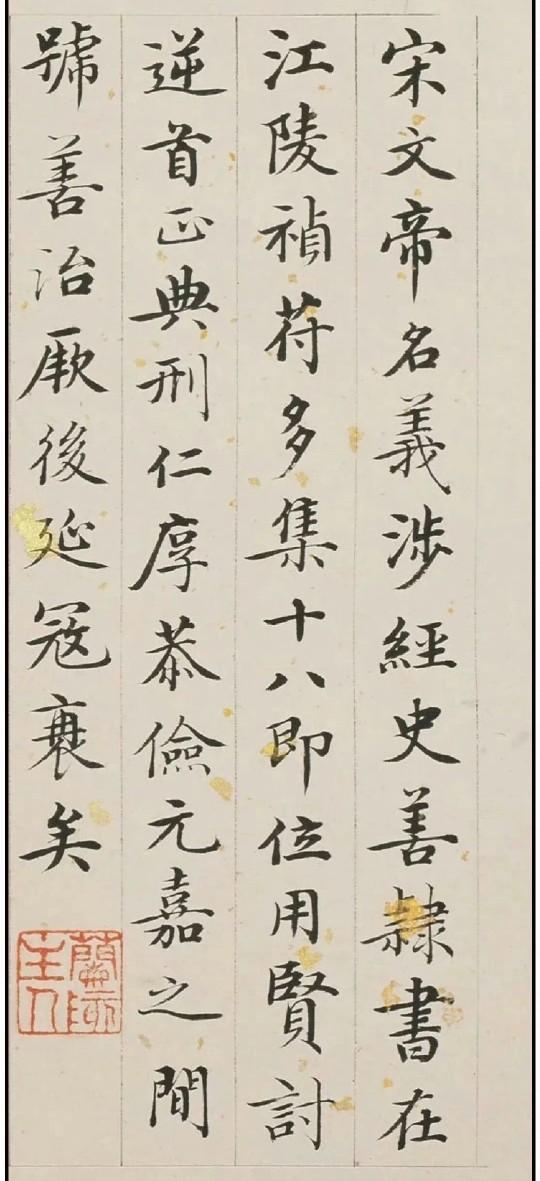 宋文帝名義涉經史善隸書在
江陵禎苻多集十八即位用賢討
逆首正典刑仁厚恭儉元嘉之間
號善治厥後延寇衰矣
主人